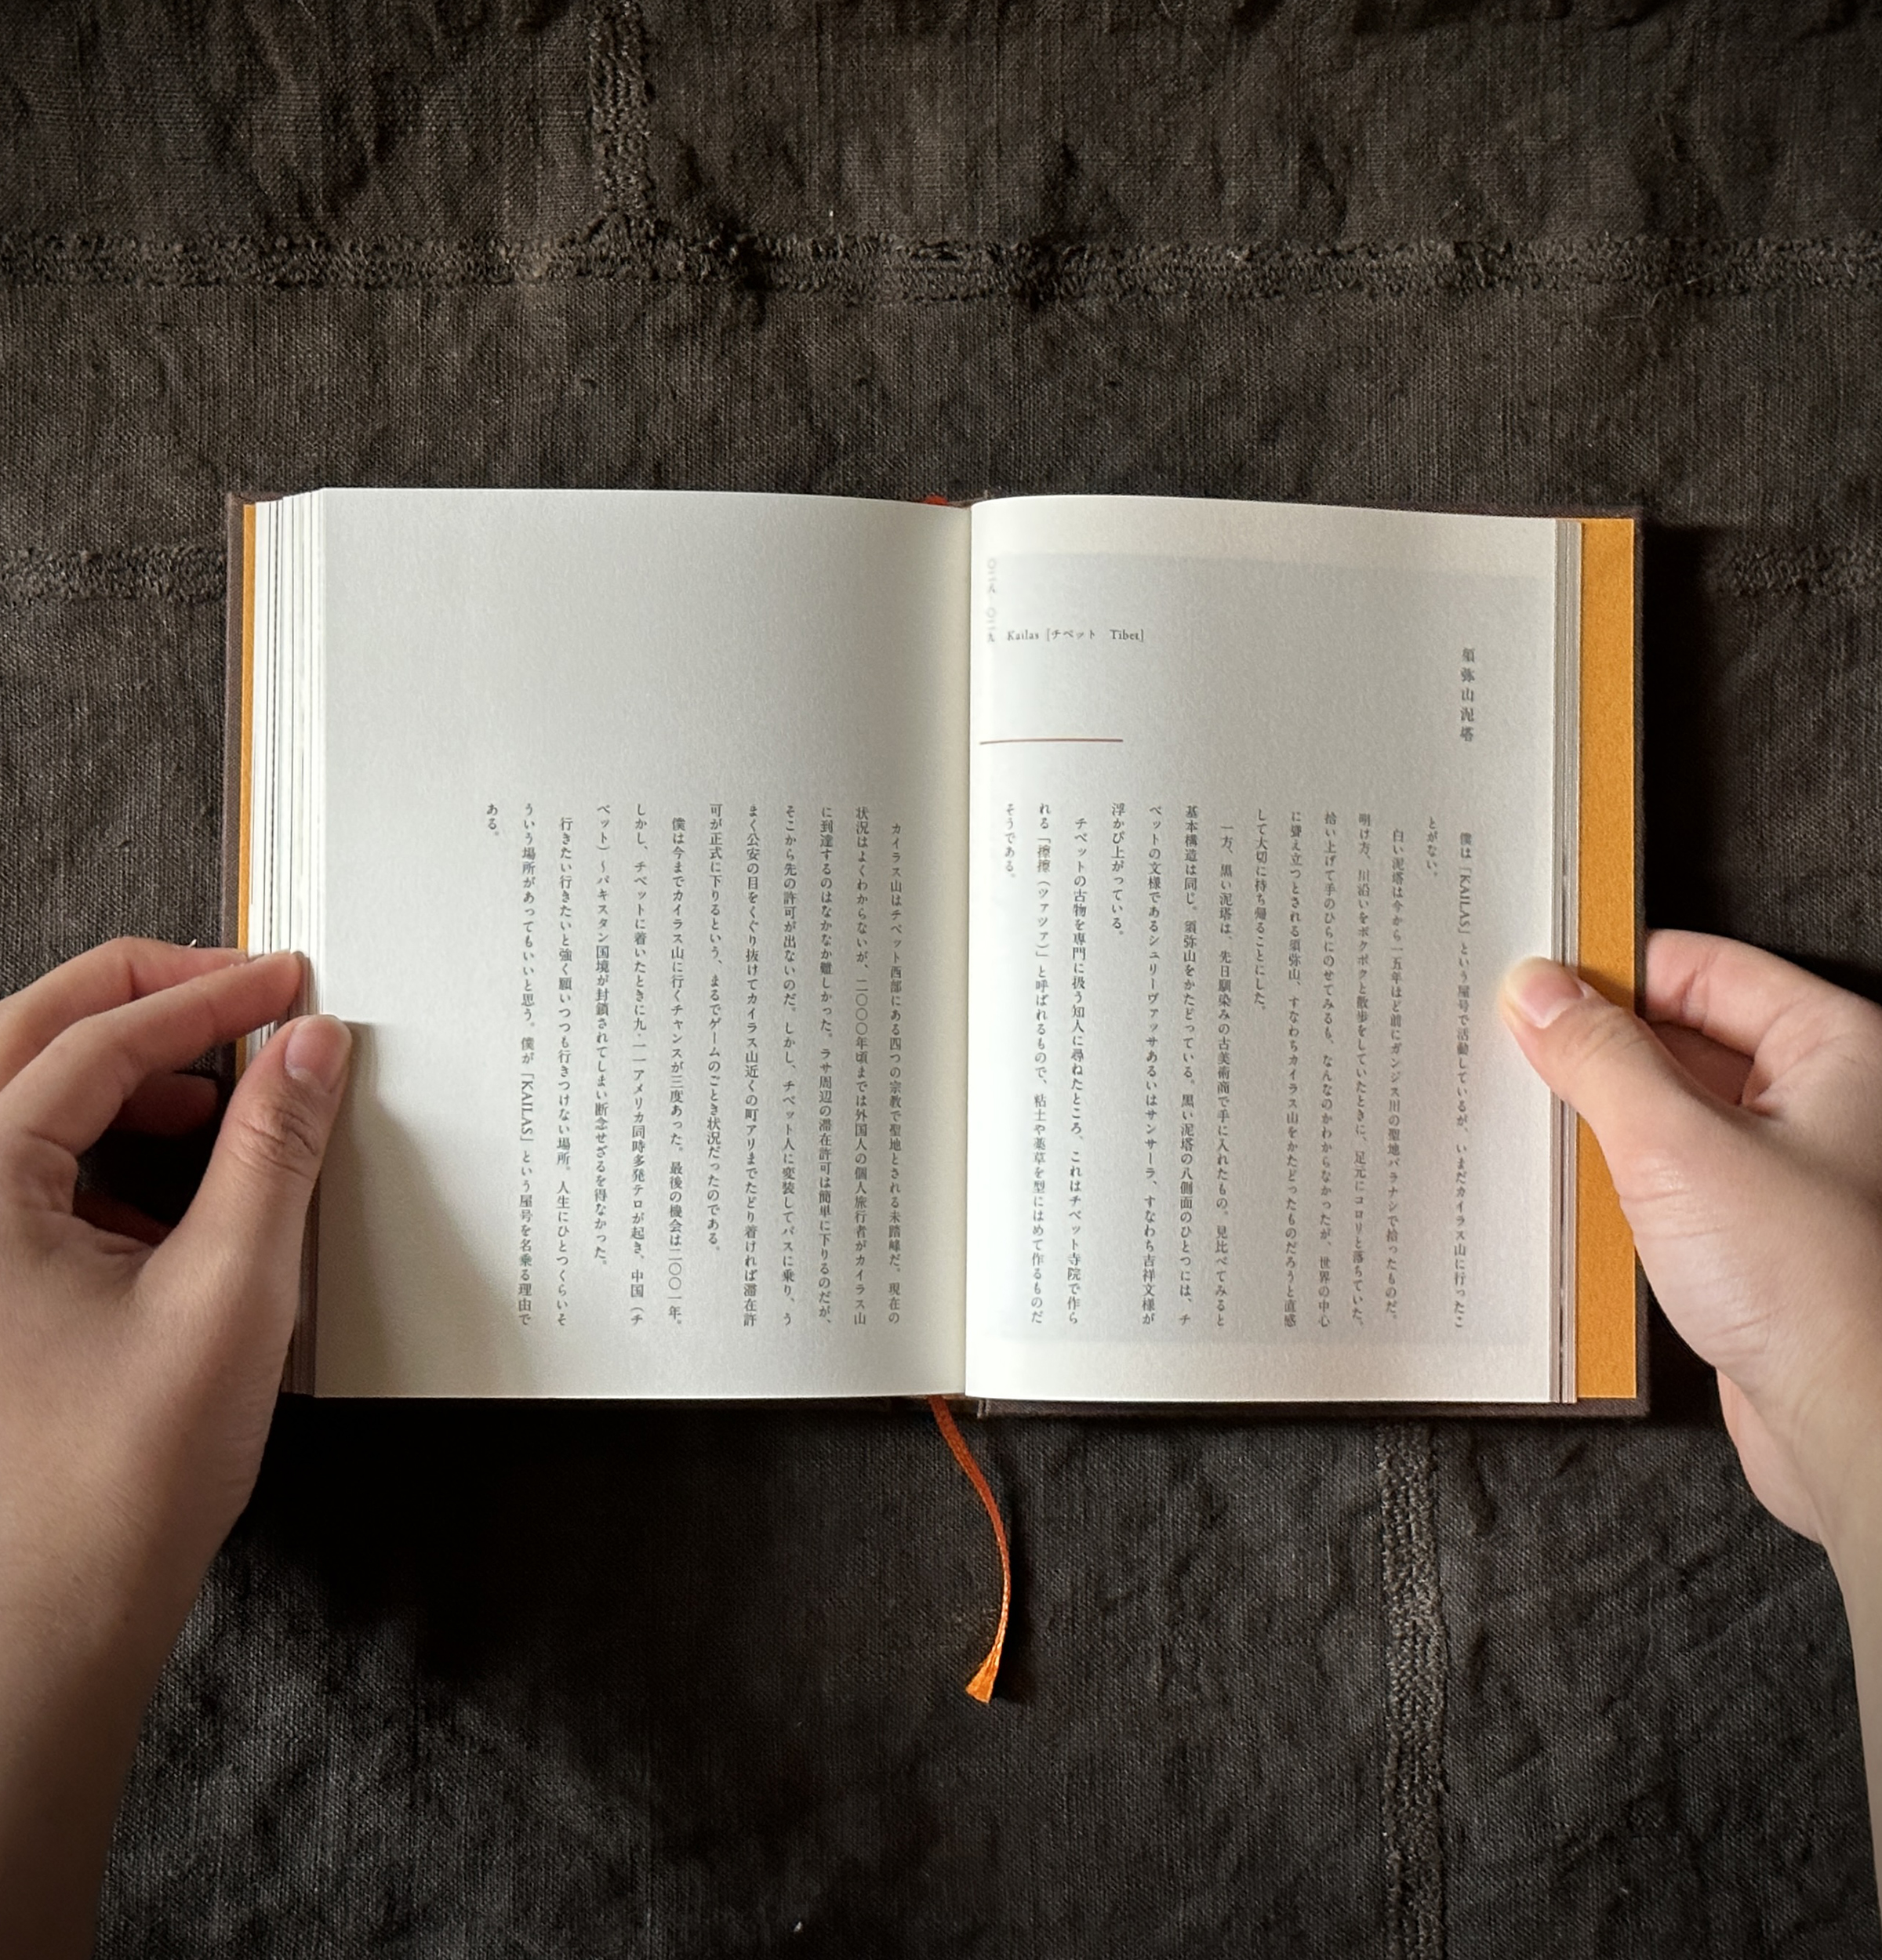 須弥山泥塔
僕は「KAILAS」という屋号で活動しているが、いまだカイラス山に行ったこ
とがない。
白い泥塔は今から一五年ほど前にガンジス川の聖地バラナシで拾ったものだ。
明け方、川沿いをポクポクと散歩をしていたときに、足元にコロリと落ちていた。
拾い上げて手のひらにのせてみるも、なんなのかわからなかったが、世界の中心
に聳え立つとされる須弥山、すなわちカイラス山をかたどったものだろうと直感
して大切に持ち帰ることにした。
一方、黒い泥塔は、先日馴染みの古美術商で手に入れたもの。見比べてみると
基本構造は同じ。須弥山をかたどっている。黒い泥塔の八側面のひとつには、チ
ベットの文様であるシュリーヴァッサあるいはサンサーラ、すなわち吉祥文様が
浮かび上がっている。
チベットの古物を専門に扱う知人に尋ねたところ、これはチベット寺院で作ら
れる「擦擦（ツァツァ）」と呼ばれるもので、粘土や薬草を型にはめて作るものだ
そうである。
Kailas [チベット Tibet]
〇二八 〇二九
カイラス山はチベット西部にある四つの宗教で聖地とされる未踏峰だ。現在の
状況はよくわからないが、二〇〇〇年頃までは外国人の個人旅行者がカイラス山
に到達するのはなかなか難しかった。ラサ周辺の滞在許可は簡単に下りるのだが、
そこから先の許可が出ないのだ。しかし、チベット人に変装してバスに乗り、う
まく公安の目をくぐり抜けてカイラス山近くの町アリまでたどり着ければ滞在許
可が正式に下りるという、まるでゲームのごとき状況だったのである。
僕は今までカイラス山に行くチャンスが三度あった。最後の機会は二〇〇一年。
しかし、チベットに着いたときに九・一一アメリカ同時多発テロが起き、中国（チ
ベット）〜パキスタン国境が封鎖されてしまい断念せざるを得なかった。
行きたい行きたいと強く願いつつも行きつけない場所。人生にひとつくらいそ
ういう場所があってもいいと思う。僕が「KAILAS」という屋号を名乗る理由で
ある。